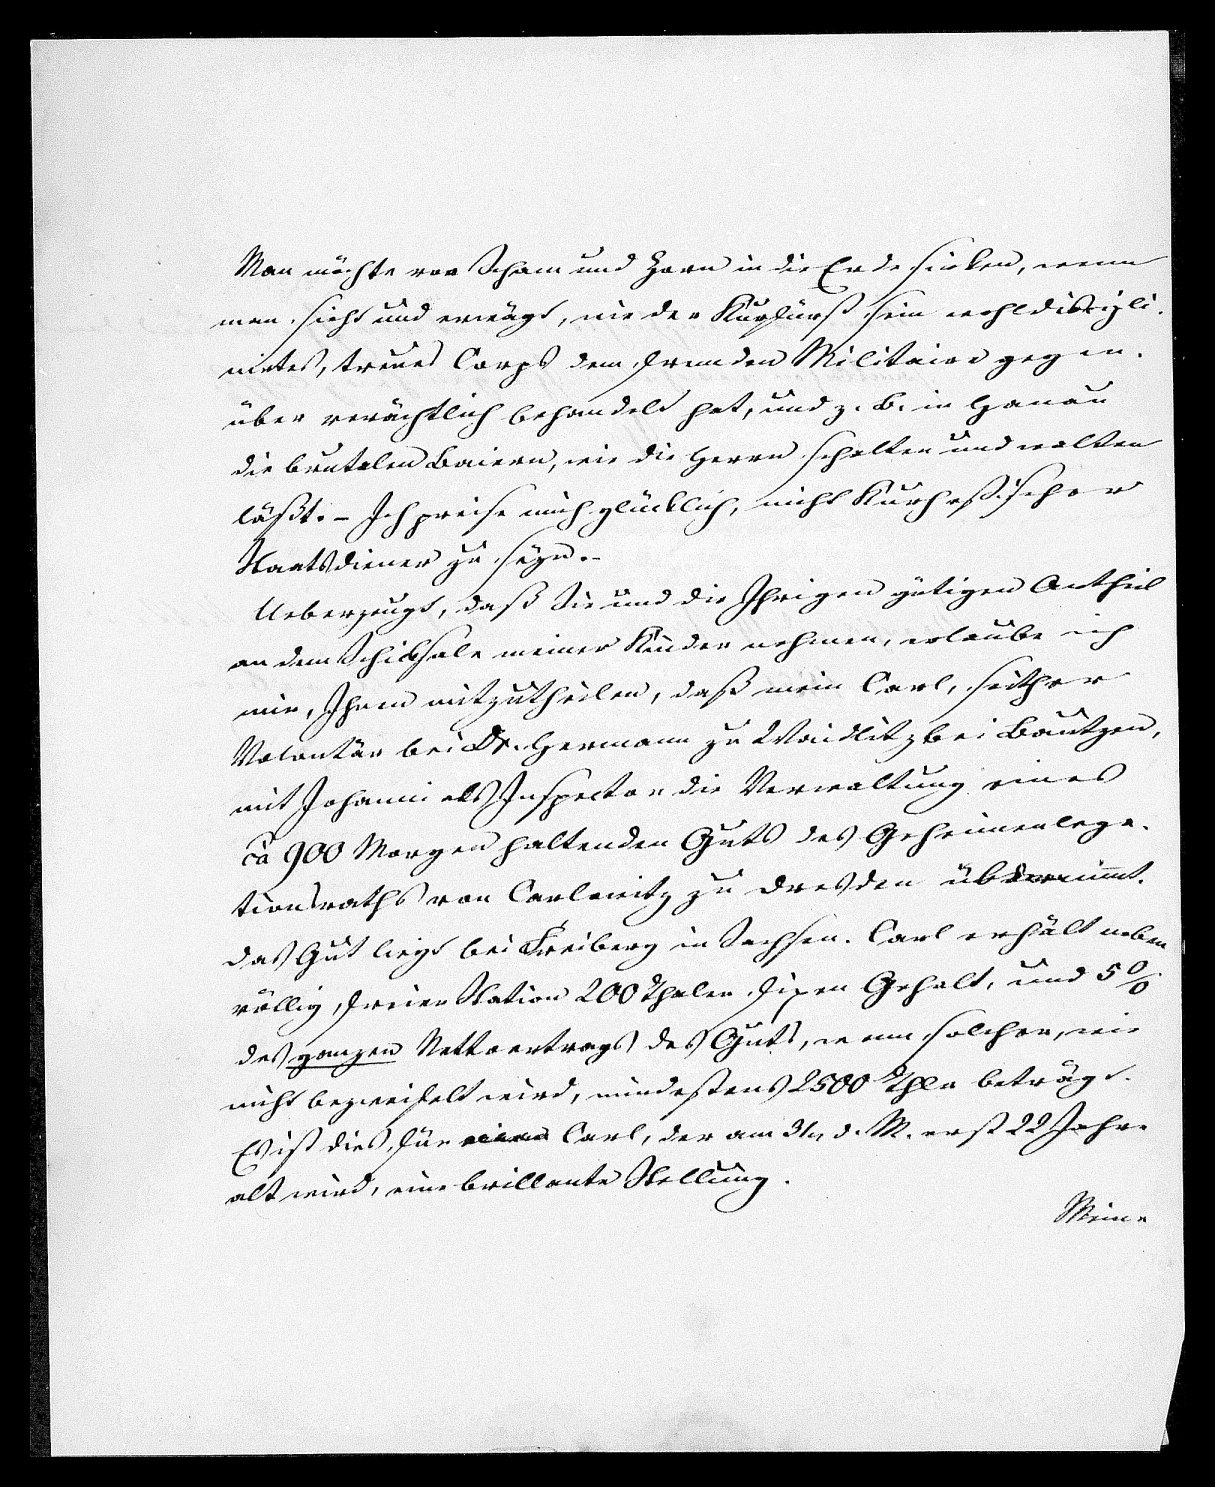 Man möchte vor Scham und Zorn in die Erde sinken, wenn
man sieht und erwägt, wie der Kurfürst sein wohldiscipli-
nirtes, treues Corps dem fremden Militaire gegen-
über verächtlich behandelt hat, und z. B. in Hanau
die brutalen Baiern, wie die Herrn schalten und walten
läßt. - Ich preise mich glücklich, nicht Kurhessischer
Staatsdiener zu seyn. -
Ueberzeugt, daß Sie und die Ihrigen gütigen Antheil
an dem Schicksale meiner Kinder nehmen, erlaube ich
mir, Ihnen mitzutheilen, daß mein Carl, seither
Volontär bei Dr. Hermann zu Waidlitz bei Bautzen,
mit Johanni als Inspector die Verwaltung eines
ca 900 Morgen haltenden Guts des Geheimenlega-
tionsraths von Carlowitz zu Dresden übernimmt.
Das Gut liegt bei Freiberg in Sachsen. Carl erhält neben
völlig freier Station 200 Thaler fixen Gehalt, und 5 %
des ganzen Nettoertrags des Guts, wenn solcher, wie
nicht bezweifelt wird, mindestens 2500 Thlr beträgt.
Es ist dies für Carl, der am d. M. erst 22 Jahre
alt wird, eine brillante Stellung.
Meine